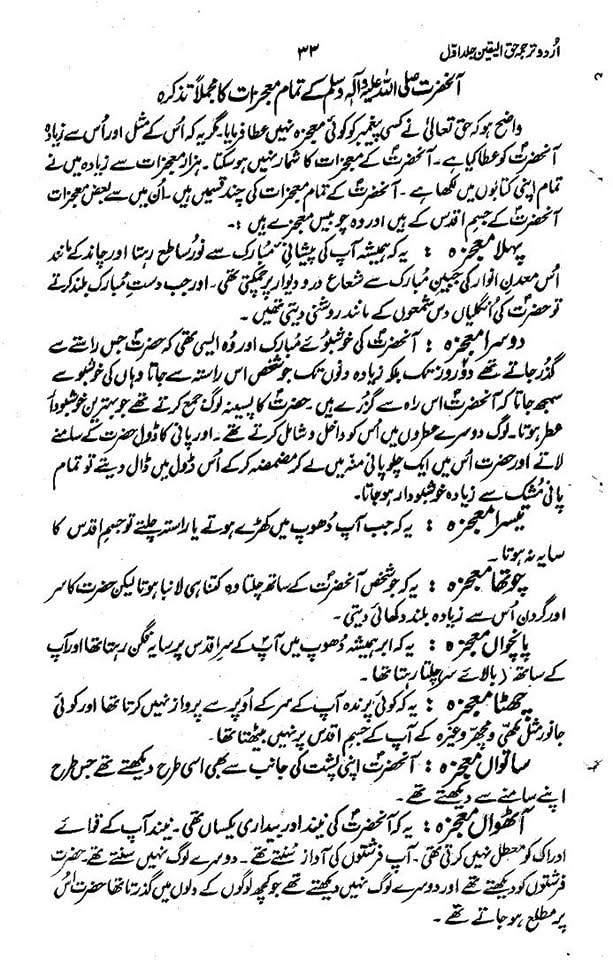 اُردو ترجمہ حق الیقین جلد اوّل ۳۳
آنحضرت صلی اللہ علیہ وآلہ وسلم کے تمام معجزات کا مجملاً تذکرہ
واضح ہو کہ حق تعالیٰ نے کسی پیغمبر کو کوئی معجزہ نہیں عطا فرمایا۔ مگر یہ کہ اُس کے مثل اور اُس سے زیادہ
آنحضرتؐ کو عطا کیا ہے۔ آنحضرتؐ کے معجزات کا شمار نہیں ہو سکتا۔ ہزار معجزات سے زیادہ میں نے
تمام اپنی کتابوں میں لکھا ہے۔ آنحضرتؐ کے تمام معجزات کی چند قسمیں ہیں۔ اُن میں سے بعض معجزات
آنحضرتؐ کے جسمِ اقدس کے ہیں اور وہ چوبیس معجزے ہیں :۔
پہلا معجزہ : یہ کہ ہمیشہ آپ کی پیشانی مبارک سے نُور ساطع رہتا اور چاند کے مانند
اُس معدنِ انوار کی جبین مُبارک سے شعاع در و دیوار پر چمکتی تھی۔ اور جب دستِ مُبارک بلند کرتے
تو حضرتؐ کی اُنگلیاں دس شمعوں کے مانند روشنی دیتی تھیں۔
دوسرا معجزہ : آنحضرتؐ کی خوشبوئے مبارک اور وُہ ایسی تھی کہ حضرتؐ جس راستے سے
گذر جاتے تھے دو روز تک بلکہ زیادہ دنوں تک جو شخص اس راستہ سے جاتا وہاں کی خوشبو سے
سمجھ جاتا کہ آنحضرتؐ اس راہ سے گزرے ہیں۔ حضرتؐ کا پسینہ لوگ جمع کرتے تھے جو بہترین خوشبودار
عطر ہوتا۔ لوگ دوسرے عطروں میں اُس کو داخل و شامل کرتے تھے۔ اور پانی کا ڈول حضرت کے سامنے
لاتے اور حضرت اُس میں ایک چلو پانی منہ میں لے کر مضمضہ کر کے اُس ڈول میں ڈال دیتے تو تمام
پانی مُشک سے زیادہ خوشبودار ہو جاتا۔
تیسرا معجزہ : یہ کہ جب آپ دُھوپ میں کھڑے ہوتے یا راستہ چلتے تو جسمِ اقدس کا
سایہ نہ ہوتا۔
چوتھا معجزہ : یہ کہ جو شخص آنحضرتؐ کے ساتھ چلتا وہ کتنا ہی لانبا ہوتا لیکن حضرت کا سر
اور گردن اُس سے زیادہ بلند دکھائی دیتی۔
پانچواں معجزہ : یہ کہ ابر ہمیشہ دُھوپ میں آپ کے سرِ اقدس پر سایہ فگن رہتا تھا اور آپ
کے ساتھ (بالائے سر) چلتا رہتا تھا۔
چھٹا معجزہ : یہ کہ کوئی پرندہ آپ کے سر کے اُوپر سے پرواز نہیں کرتا تھا اور کوئی
جانور مثل مکھی و مچھر وغیرہ کے آپ کے جسمِ اقدس پر نہیں بیٹھتا تھا۔
ساتواں معجزہ : آنحضرتؐ اپنی پشت کی جانب سے بھی اسی طرح دیکھتے تھے جس طرح
اپنے سامنے سے دیکھتے تھے۔
آٹھواں معجزہ : یہ کہ آنحضرتؐ کی نیند اور بیداری یکساں تھی۔ نیند آپ کے قوائے
ادراک کو معطل نہیں کرتی تھی۔ آپ فرشتوں کی آواز سُنتے تھے۔ دوسرے لوگ نہیں سنتے تھے۔ حضرت
فرشتوں کو دیکھتے تھے اور دوسرے لوگ نہیں دیکھتے تھے جو کچھ لوگوں کے دلوں میں گذرتا تھا حضرت اُس
پر مطلع ہو جاتے تھے۔